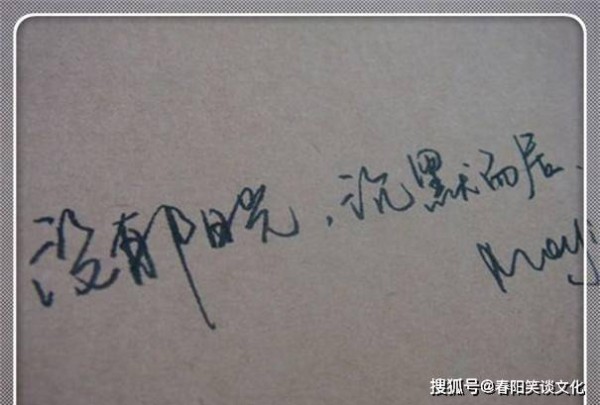 没有阳光，沉默而居、
搜狐号@春阳笑谈文化